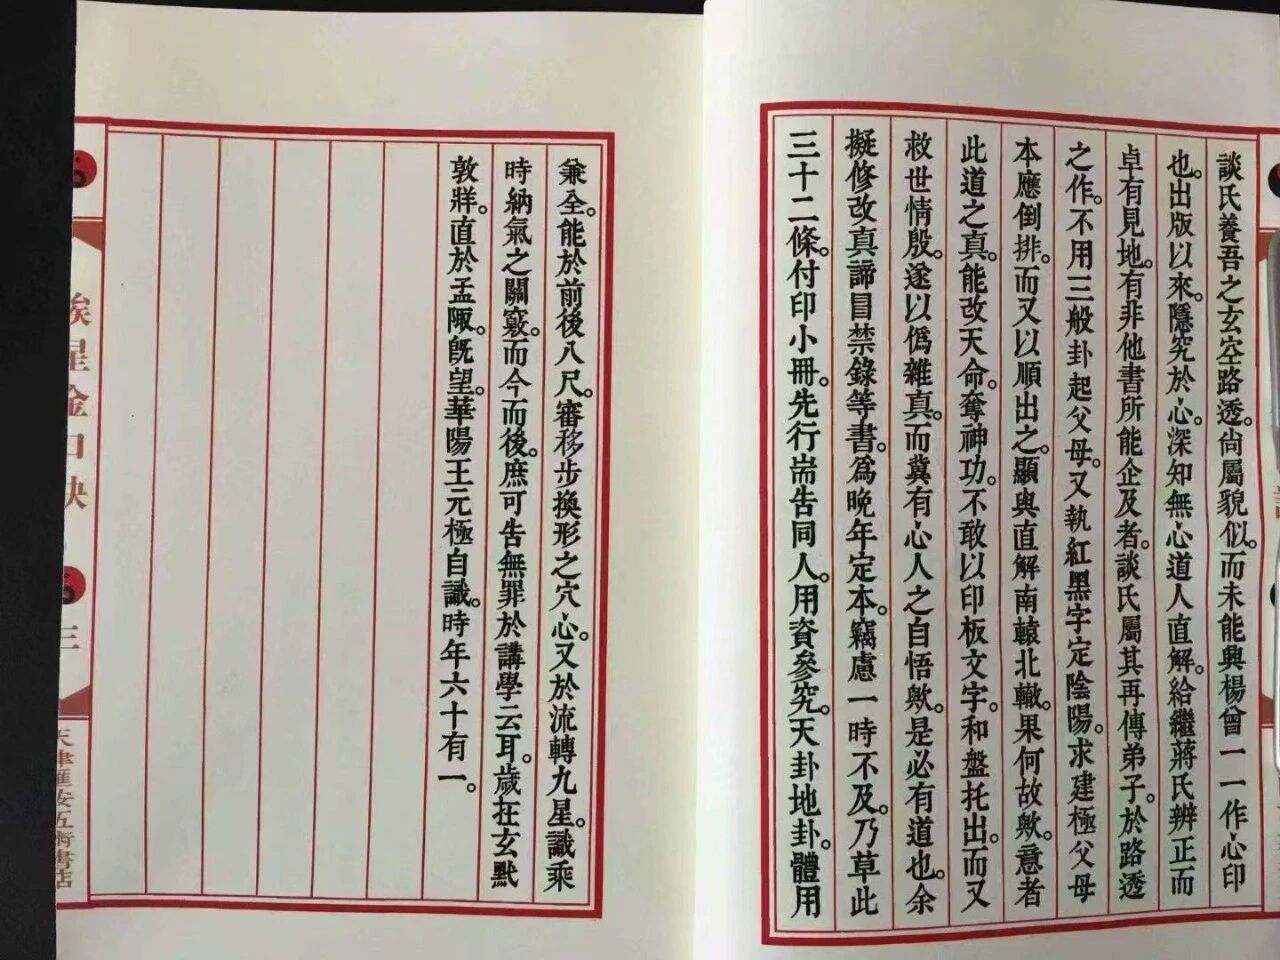 談氏養吾之玄空路透。尙屬貌似。而未能與楊曾一一作心印
也。出版以來。隱究於心。深知無心道人直解。給繼蔣氏辨正而
卓有見地。有非他書所能企及者。談氏屬其再傳弟子。於路透
之作。不用三般卦起父母。又執紅黑字定陰陽。求建極父母
本應倒排。而又以順出之。顯與直解南轅北轍。果何故歟。意者
此道之真。能改天命。奪神功。不敢以印板文字。和盤托出。而又
救世情殷。遂以僞雜真。而冀有心人之自悟歟。是必有道也。余
擬修改真諦冒禁錄等書。爲晚年定本。竊慮一時不及。乃草此
三十二條。付印小冊。先行耑告同人。用資參究。天卦地卦。體用
兼全。能於前後八尺。審移步換形之穴心。又於流轉九星。識乘
時納氣之關竅。而今而後。庶可告無罪於講學云耳。歲在玄黙
敦牂。直於孟陬。旣望。華陽王元極自識。時年六十有一。
挨星金口訣
三
天津匯安五術書店